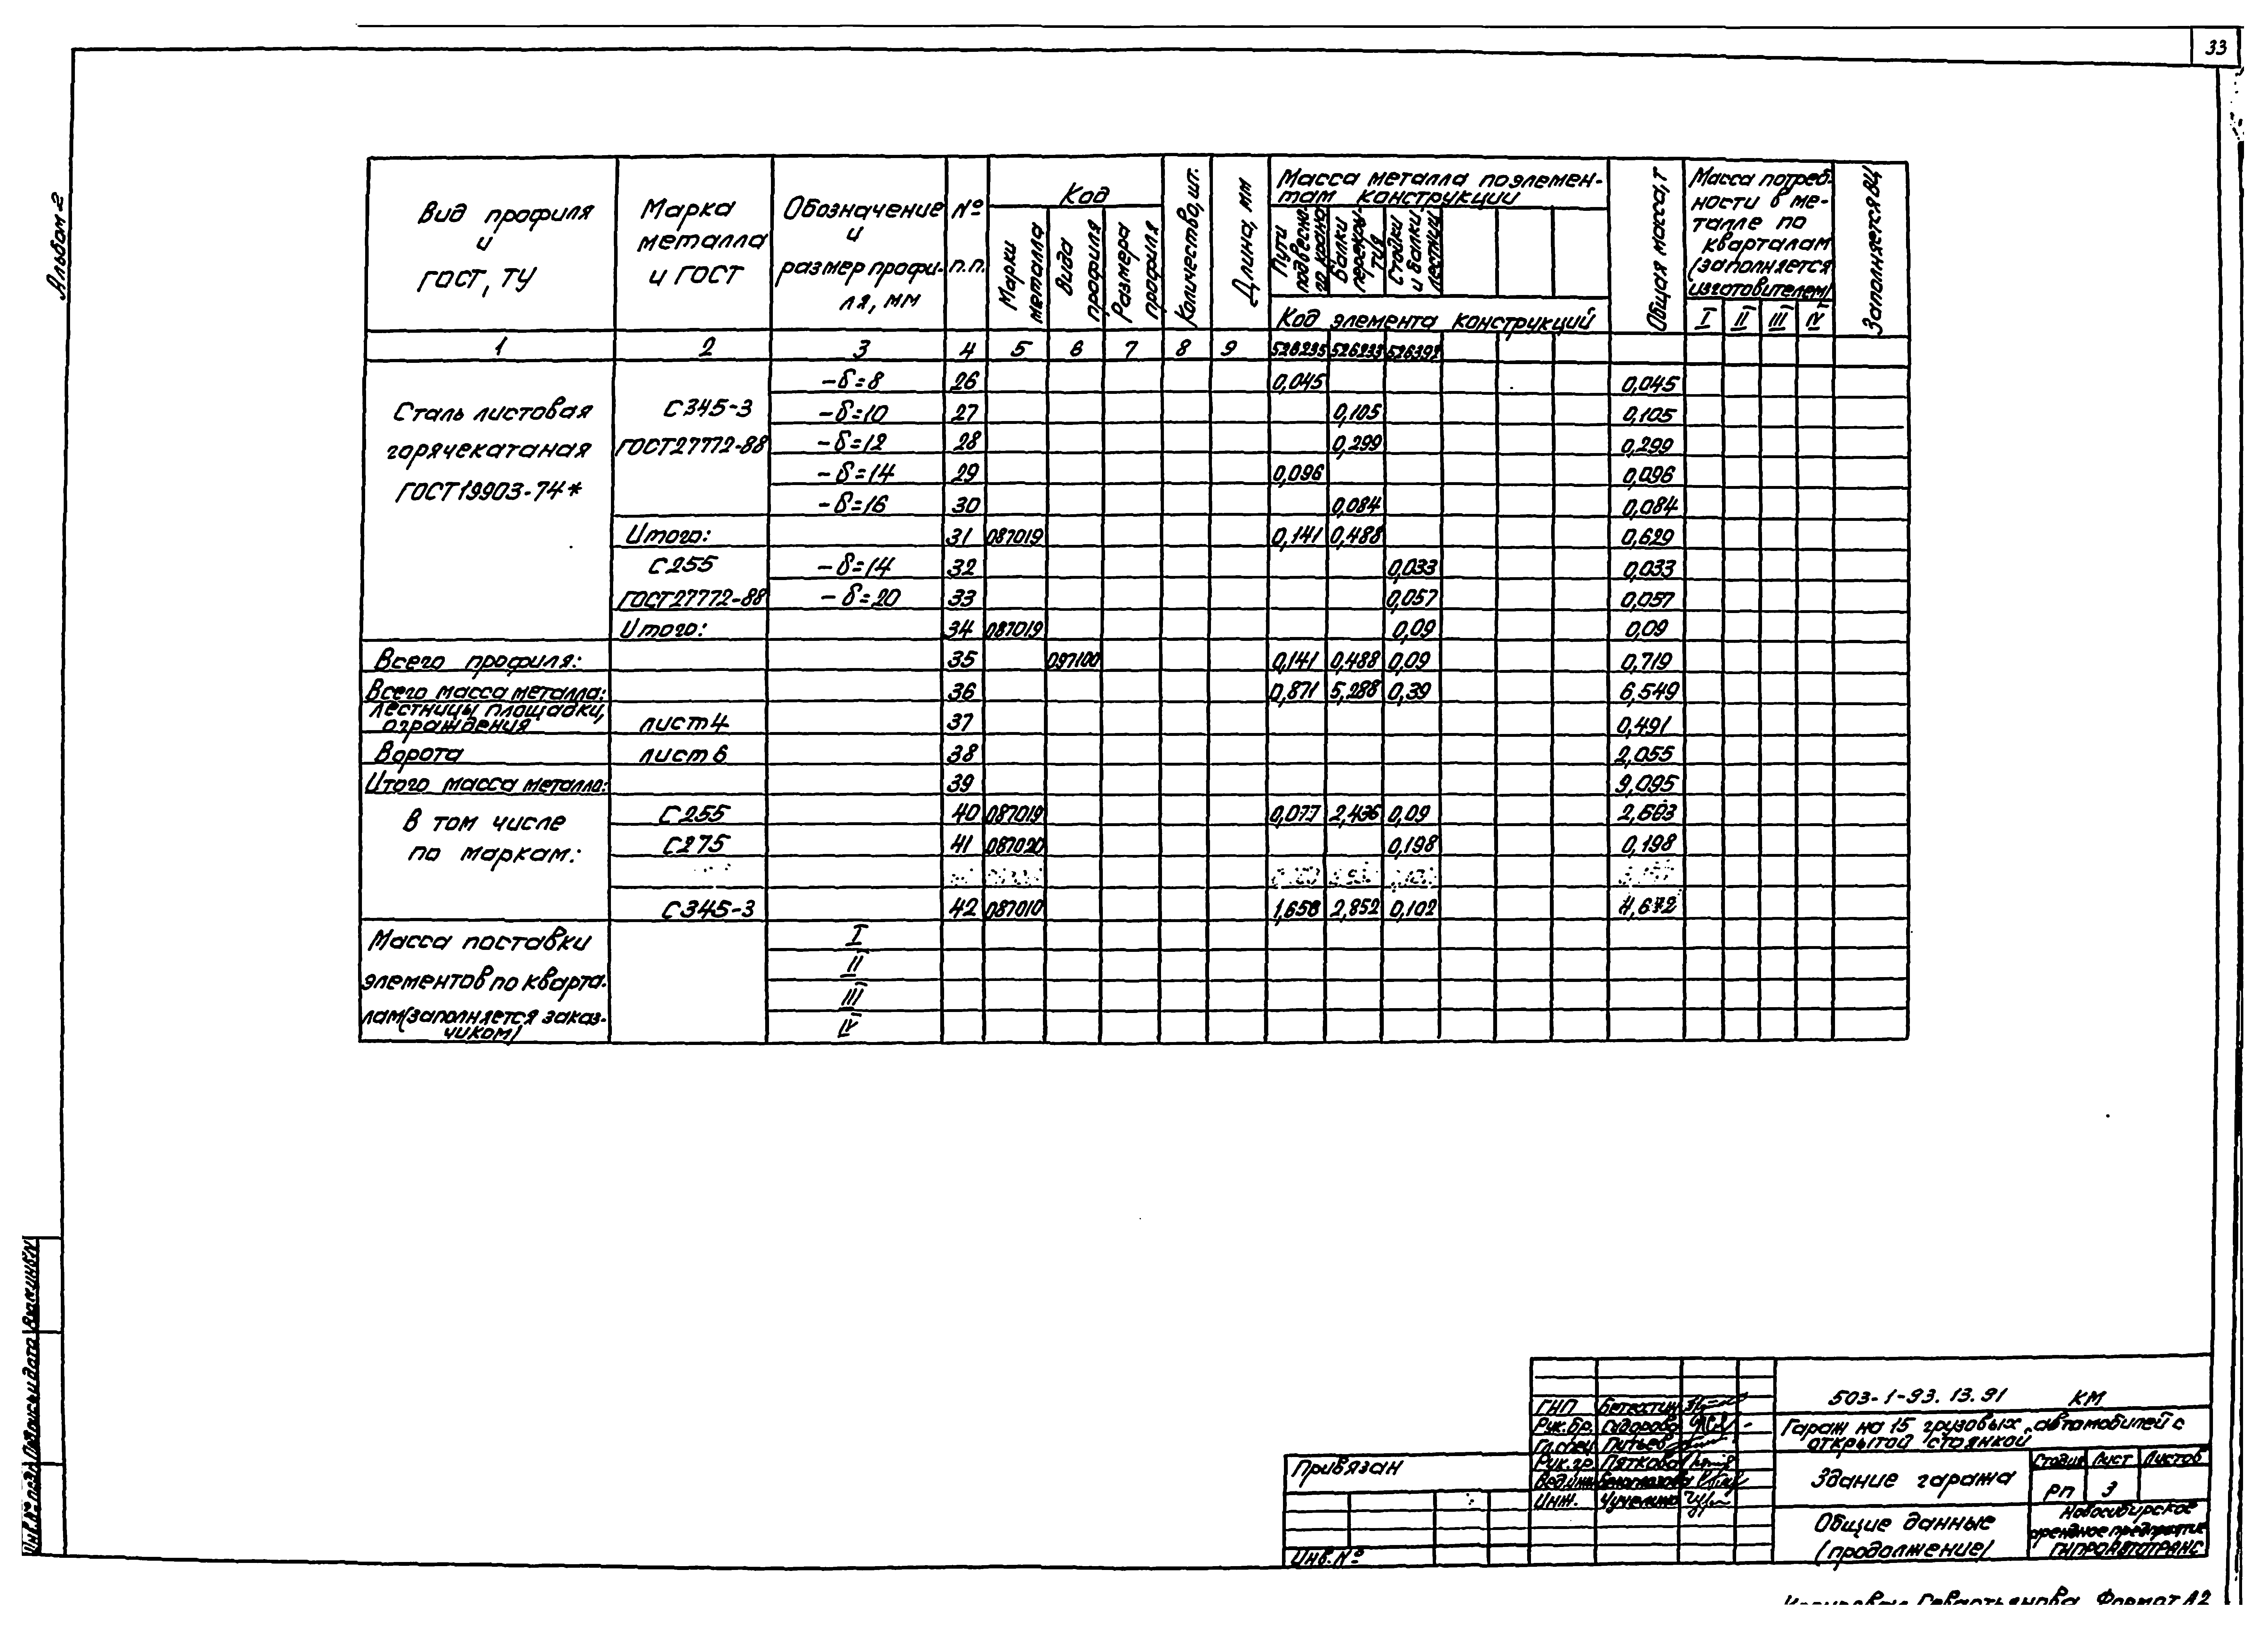 33
Альбом 2
Вид профиля и ГОСТ, ТУ
Марка металла и ГОСТ
Обозначение и размер профиля, мм
№ п.п.
Код
Марки металла
Вида профиля
Размера профиля
Количество, шт.
Длина, мм
Масса металла по элемен-
там конструкции
Пути подвесно-го крана
Балки перекры-тия
Стойки и балки лестниц
Код элемента конструкций
Общая масса, т
Масса потреб-
ности в ме-
талле по
кварталам
(заполняется
изготовителем)
I II III IV
Заполняется ВЦ
1 2 3 4 5 6 7 8 9 526235 526233 526392
Сталь листовая
горячекатаная
ГОСТ 19903-74*
С345-3
ГОСТ 27772-88
-δ=8 26 0,045 0,045
-δ=10 27 0,105 0,105
-δ=12 28 0,299 0,299
-δ=14 29 0,096 0,096
-δ=16 30 0,084 0,084
Итого: 31 087019 0,141 0,488 0,629
С255 -δ=14 32 0,033 0,033
ГОСТ 27772-88 -δ=20 33 0,057 0,057
Итого: 34 087019 0,09 0,09
Всего профиля: 35 097100 0,141 0,488 0,09 0,719
Всего масса металла: 36 0,871 5,288 0,39 6,549
Лестницы, площадки,
ограждения лист 4 37 0,491
Ворота лист 6 38 2,055
Итого масса металла: 39 9,095
В том числе
по маркам:
С255 40 087019 0,077 2,436 0,09 2,603
С275 41 087020 0,198 0,198
С345-3 42 087010 1,658 2,852 0,102 4,672
Масса поставки
элементов по кварта-
лам (заполняется заказ-
чиком)
I
II
III
IV
Инв.№ подл. Подпись и дата Взам.инв.№
Привязан
Инв.№
ГНП
Рук.бр. Сидорова
Гл.спец. Путьев
Рук.гр. Пяткова
Вед.инж.
Инж.
503-1-93.13.91 КМ
Гараж на 15 грузовых автомобилей с
открытой стоянкой
Здание гаража
Стадия Лист Листов
РП 3
Общие данные
(продолжение)
Новосибирское
арендное предприятие
ГИПРОАВТОТРАНС
Копировал Севастьянова Формат А2